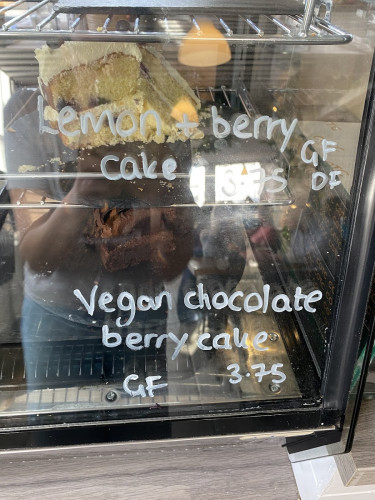 Lemon + berry GF
cake 3.75 DF
Vegan chocolate
berry cake
GF 3.75